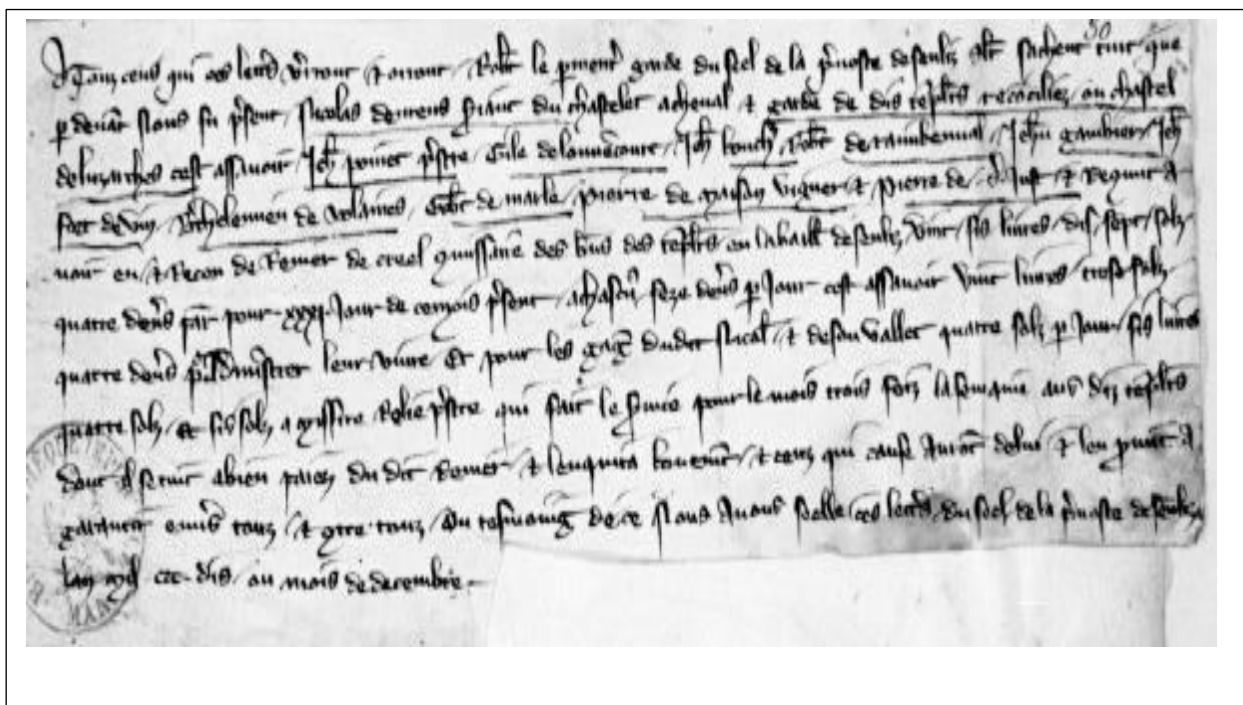 30
A Touz ceus qui ces lettres verront et orront Robert le garde du seel de la prevoste de senlis salut sachent tuit que
par devant nous fu present Nicolas serianz du chastelet a cheval et garde de dis templiers reconciliez ou chastel
de luzarches cest assavoir Jehan pouuet prestre Gile Jehan bouchier Robert de rainbeuual Jehan gaubier Jehan
fort de vin de Robert de marle pierre de maison vignier et pierre de St Just et requut
en de Remer de creel des biens des templiers en la baillie de senlis vint sis livres dis sept solz
quatre deniers par pour xxxi Jour de ce mois present a chascun seze deniers par Jour cest assavoir vint livres trese solz
quatre deniers pour amenistrer leur vivre Et pour les gages dudit Nicolas et de son vallet quatre solz par Jour sis livres
quatre solz et sis solz a messire prestre qui fait le service pour le mois trois foiz la semaine aus diz templiers
dont il se tint a bien paiez du dit Remer et len quita bonement et ceus qui cause auront de lui et len promet a
garantir envers touz et contre touz En tesmoing de ce nous avons seelle ces lettres du seel de la prevoste de senlis
lan mil ccc dis ou mois de decembre